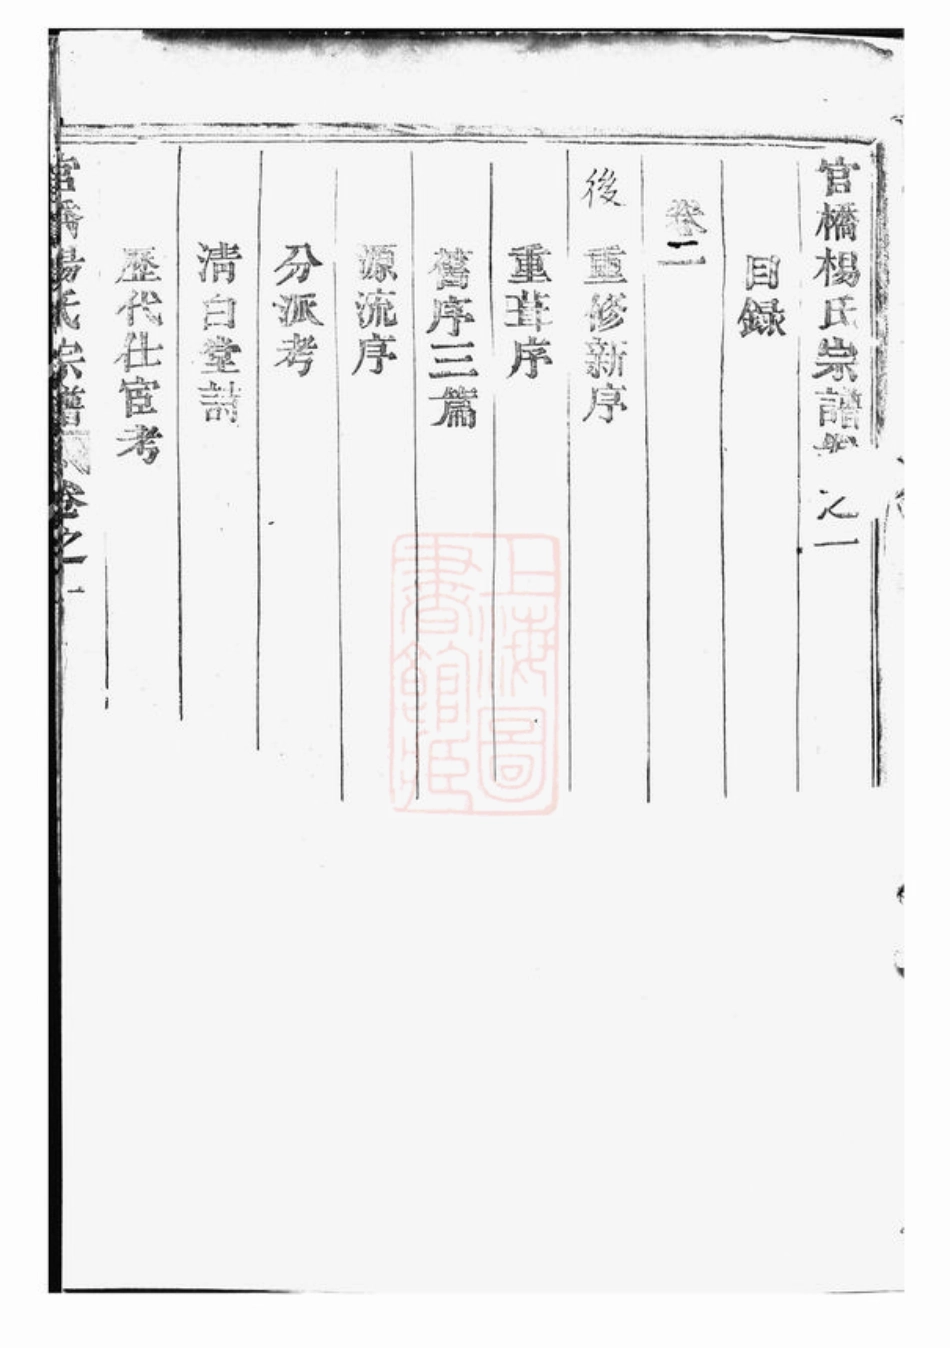 官橋楊氏宗譜卷之一
目録
卷二
後 重修新序
重葺序
舊序三篇
源流序
分派考
清白堂詩
歷代仕宦考
官橋楊氏宗譜 卷之一
上海圖書館藏